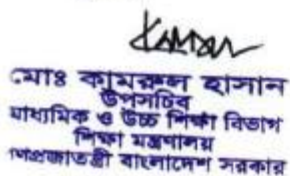 Kamrul
মোঃ কামরুল হাসান
উপসচিব
মাধ্যমিক ও উচ্চ শিক্ষা বিভাগ
শিক্ষা মন্ত্রণালয়
গণপ্রজাতন্ত্রী বাংলাদেশ সরকার